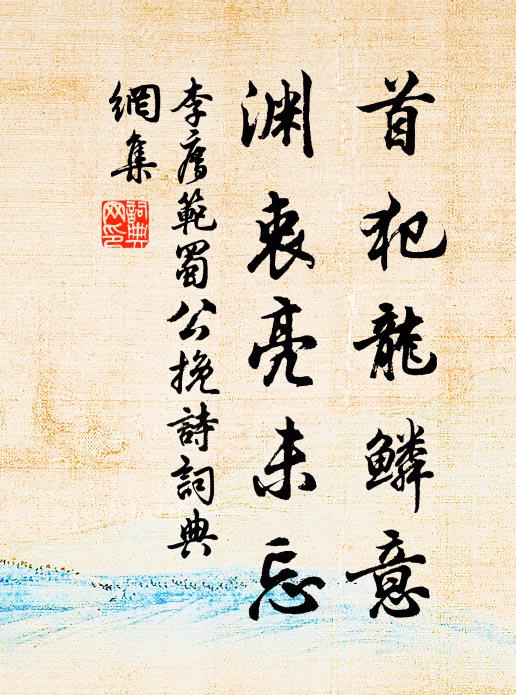 首犯龍鱗意
淵衷亮未忘
李廌範蜀公挽詩詞典
網集
詞典
网印